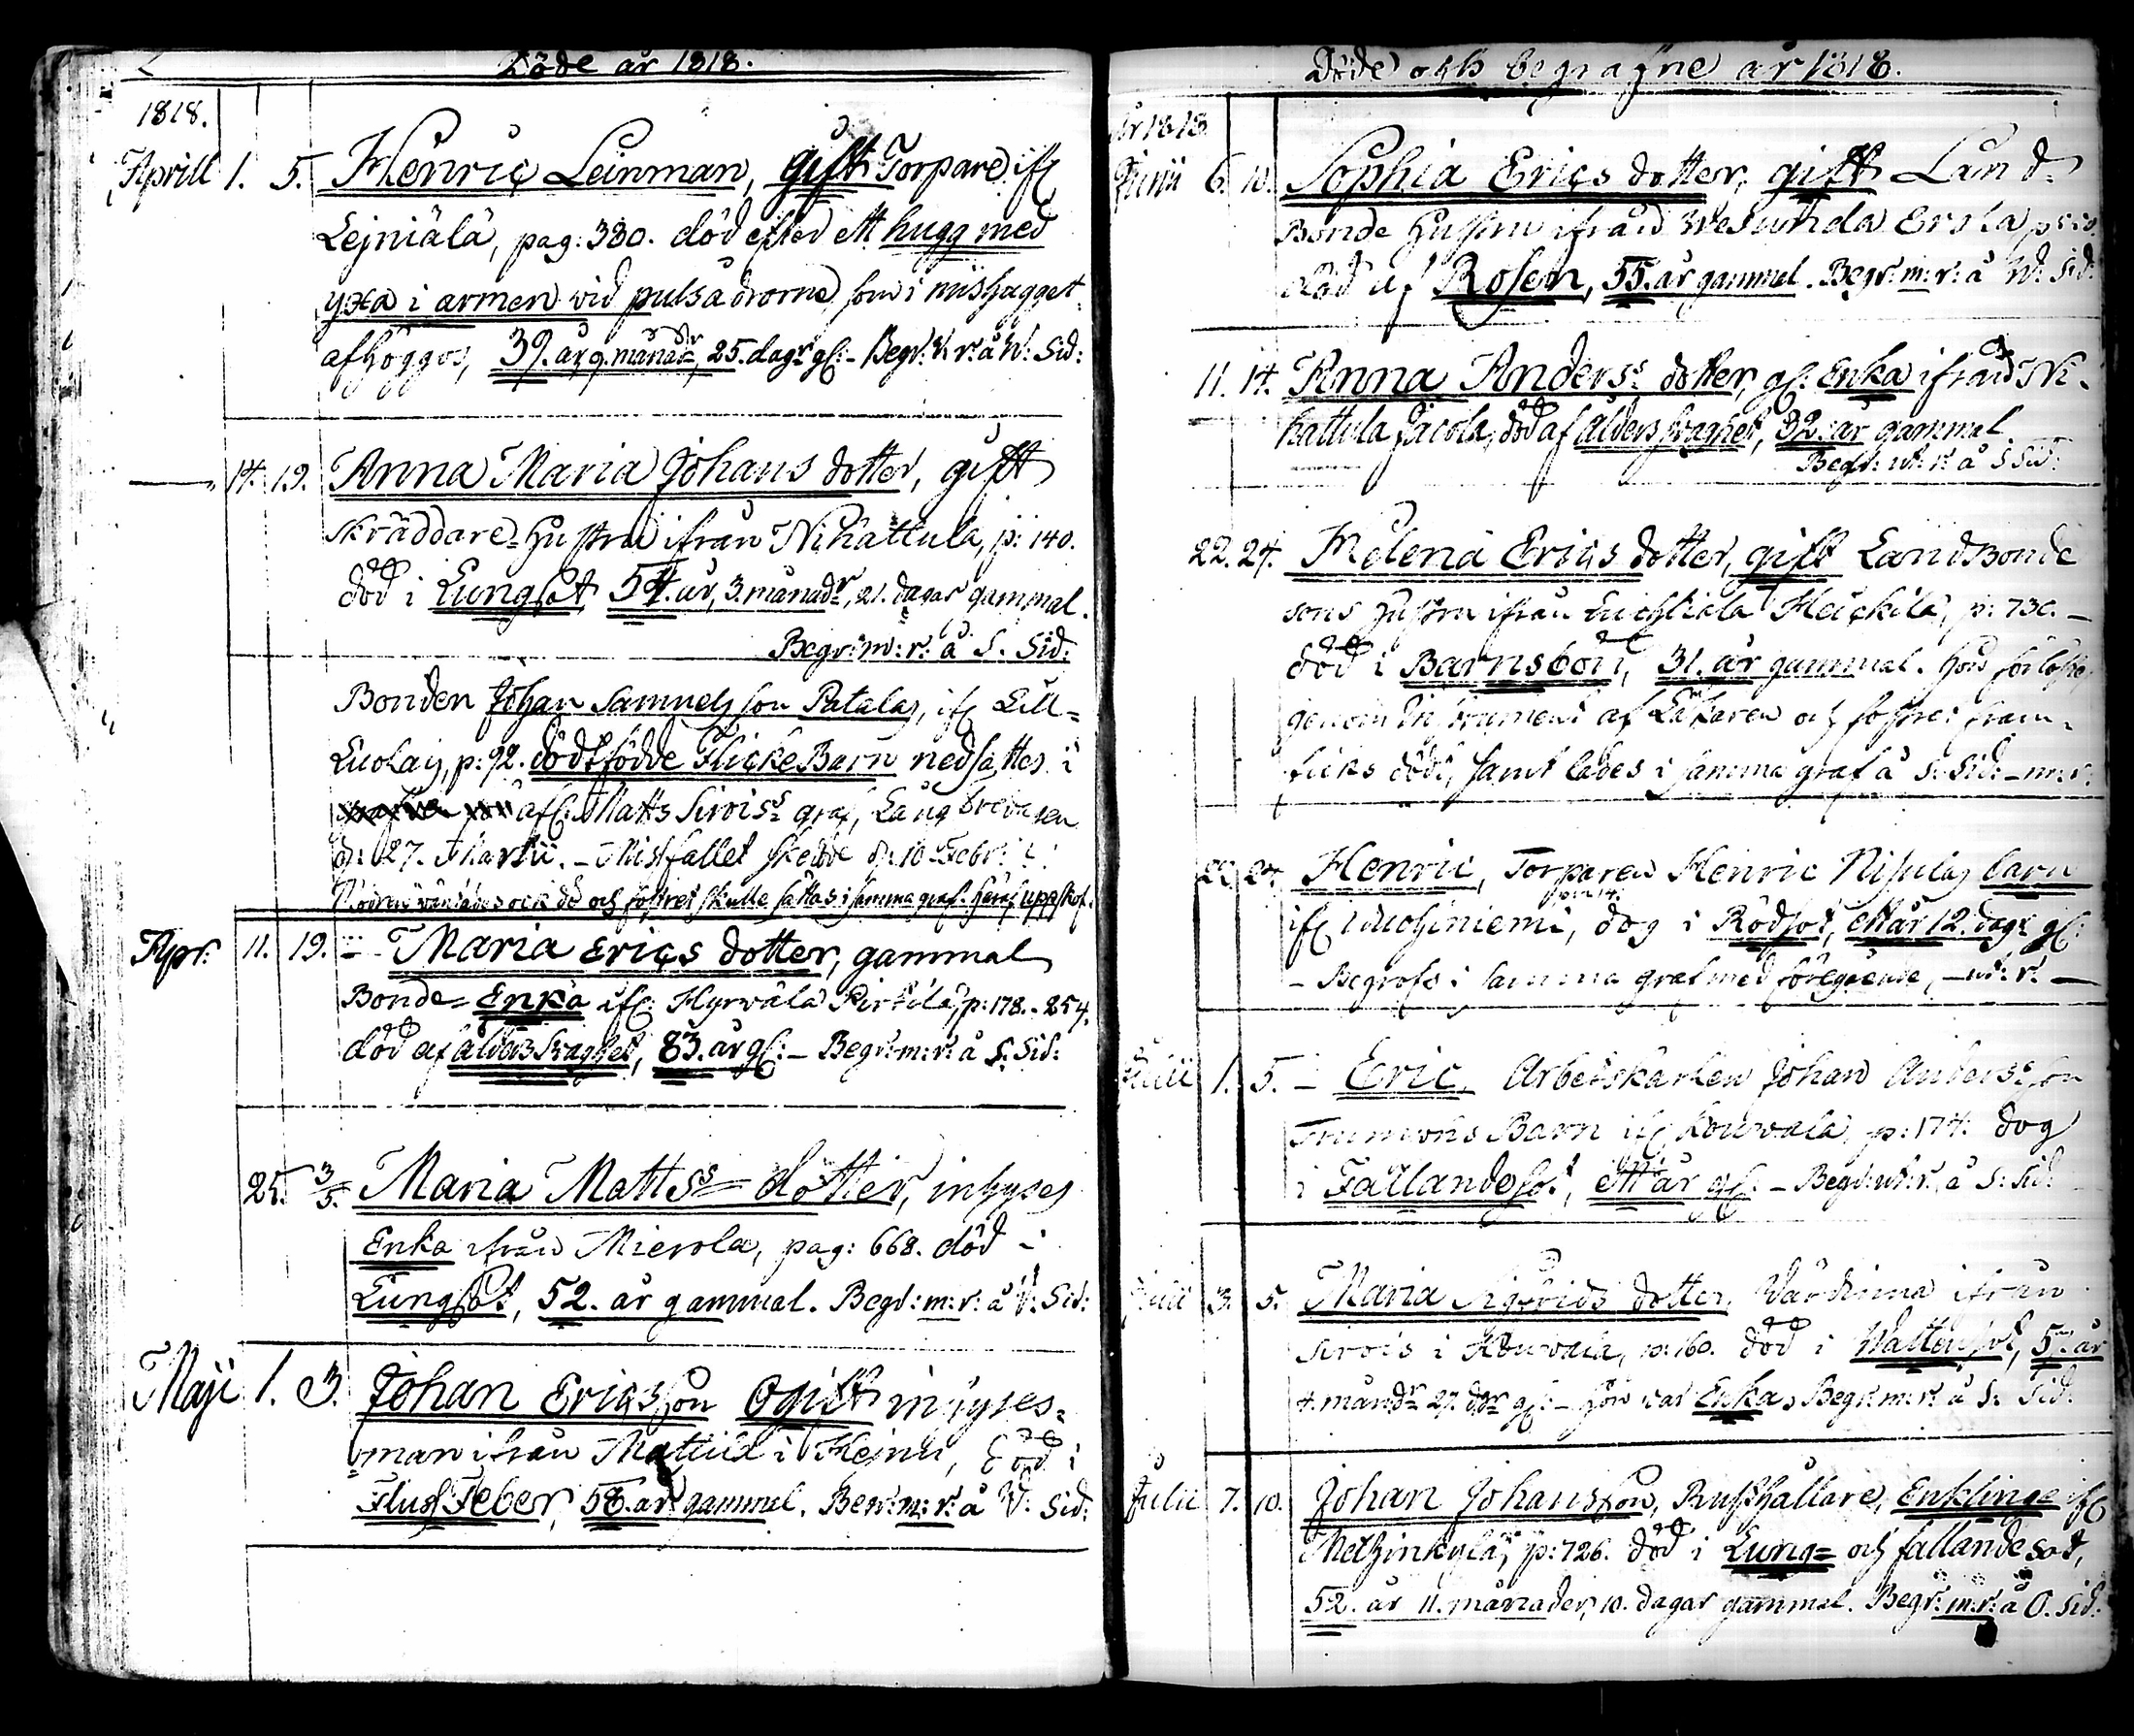 Döde år 1818.
1818.
Aprill 1. 5. Henric Leinman, gift Torpare ifr
Lejniälä, pag: 380. död efter ett hugg med
yxa i armen vid pulsådrorne, som i misshugget
afhöggos, 39. år 9. månadr, 25. dagr gl: - Begr: m: r: å W: Sid:
14. 19. Anna Maria Johans dotter, gift
Skräddare-hustru ifrån Nihattula, p: 140.
död i Lungsot, 54. år, 3. månadr, 21. dagar gammal.
Begr: m: r: å S. Sid:
Bonden Johan Samuelsson Patalas, ifr Lill-
Luolais, p: 92. dödfödde Flicke Barn nedsattes i
afl: Matts Siroiss graf, Långbrevasen
d: 27. Martii. - Missfallet skedde d: 10 Febr:
Modren väntades ock dö och fostret skulle sättas i samma graf. häraf uppskof.
Apr: 11. 19. - Maria Erics dotter, gammal
Bonde-Enka ifr: Hyrvälä Pirkilä, p: 178. 254.
död af ålders svaghet, 83. år gl: - Begr: m: r: å S: Sid:
25. 3/5. Maria Mattss dotter, inhyses
Enka ifrån Mierola, pag: 668. död i
Lungsot, 52. år gammal. Begr: m: r: å W: Sid:
Maji 1. 3. Johan Ericsson ogift inhyses-
man ifrån Mattila i Hejnu, död i
Fluss Feber, 58. år gammal. Begr: m: r: å W: Sid:
Döde och begrafne år 1818.
År 1818
Junii 6. 10. Sophia Erics dotter, gift Land-
Bonde hustru ifrån Wesunda Ersla
död af Rosen, 55. år gammal. Begr: m: r: å W: Sid:
11. 14. Anna Anderss dotter, gl: Enka ifrån Ni-
hattula Jacola, död af ålders svaghet, 82. år gammal.
Begr: m: r: å S Sid:
22. 24. Helena Erics dotter, gift LandBonde
sons hustru ifrån Heickilä, p: 730. -
död i Barnsbörd, 31. år gammal. Hon förlöstes
genom Instrument af Läkaren och fostret fram-
ficks dödt, samt lades i samma graf å S: Sid: - m: r:
22. 24. Henric, Torparen Henric Nisulas barn
ifr Wuohiniemi, dog i Rödsot, ett år 12. dagr gl:
- Begrofs i samma graf med föregående, - m: r: -
Julii 1. 5. - Eric, Arbetskarlen Johan Anderss son
Barn ifr Kouvala, p: 174. dog
i Fallandesot, ett år gl: - Begr: m: r: å S: Sid:
Julii 3. 5. Maria Sigfrids dotter, Värdinna ifrån
Sirois i Kouvala, p: 160. död i Wattusot, 57. år
4. månadr 27. dgr gl: - hon var Enka, Begr: m: r: å S: Sid:
Julii 7. 10. Johan Johansson, Rusthållare, Enklinge ifr
Metzinkylä, p: 726. död i Lung= och fallande sot,
52. år 11. månader, 10. dagar gammal. Begr: m: r: å O. Sid: